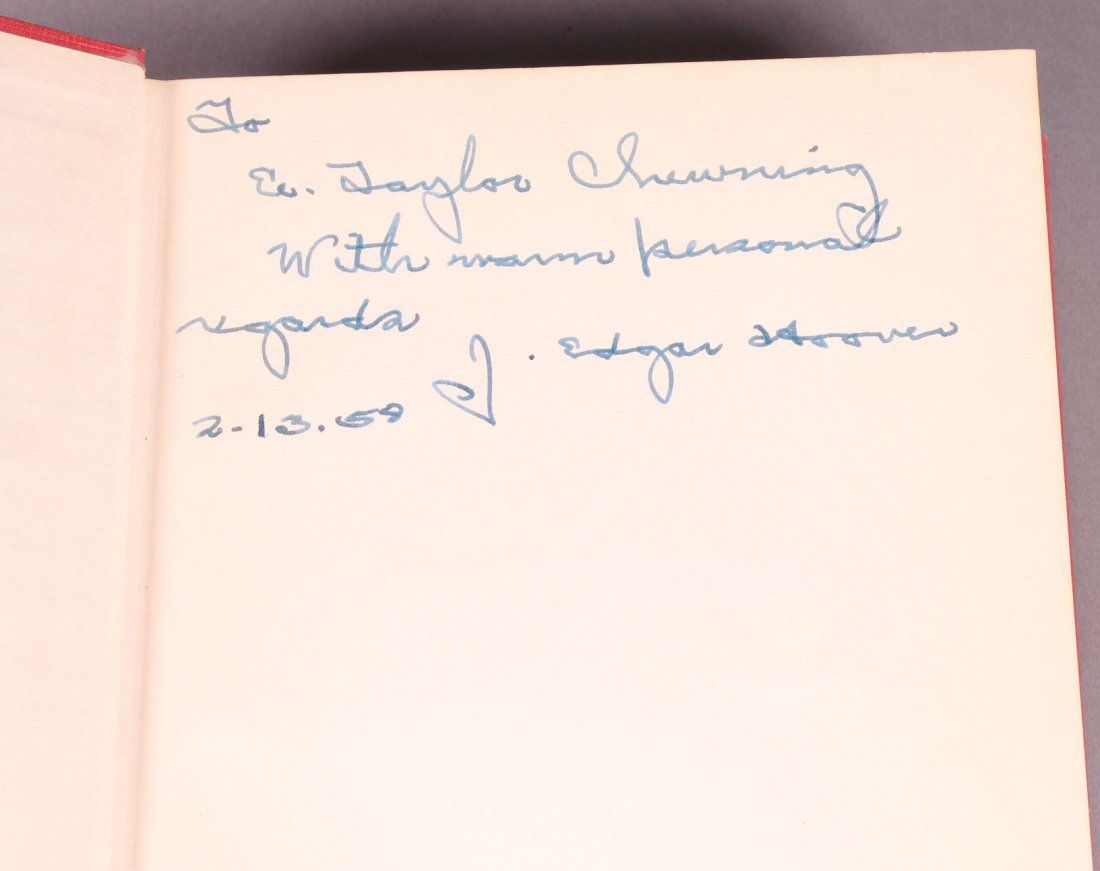 To
E. Taylor Chewning
With warm personal
regards
J. Edgar Hoover
2-13.59